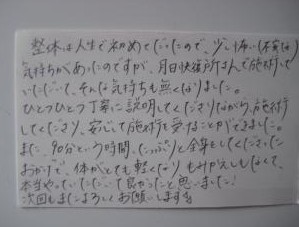 整体は人生で初めてだったので、少し怖い(不安な)
気持ちがあったのですが、月日快復所さんで施術して
いただいて、そんな気持ちも無くなりました。
ひとつひとつ丁寧に説明してくださりながら、施術
してくださり、安心して施術を受けることができました。
また、90分という時間、たっぷりと全身をしてくださった
おかげで、体がとても軽くなり、もみかえしもなくて、
本当にやっていただいて良かったと思いました!
次回もまたよろしくお願いします